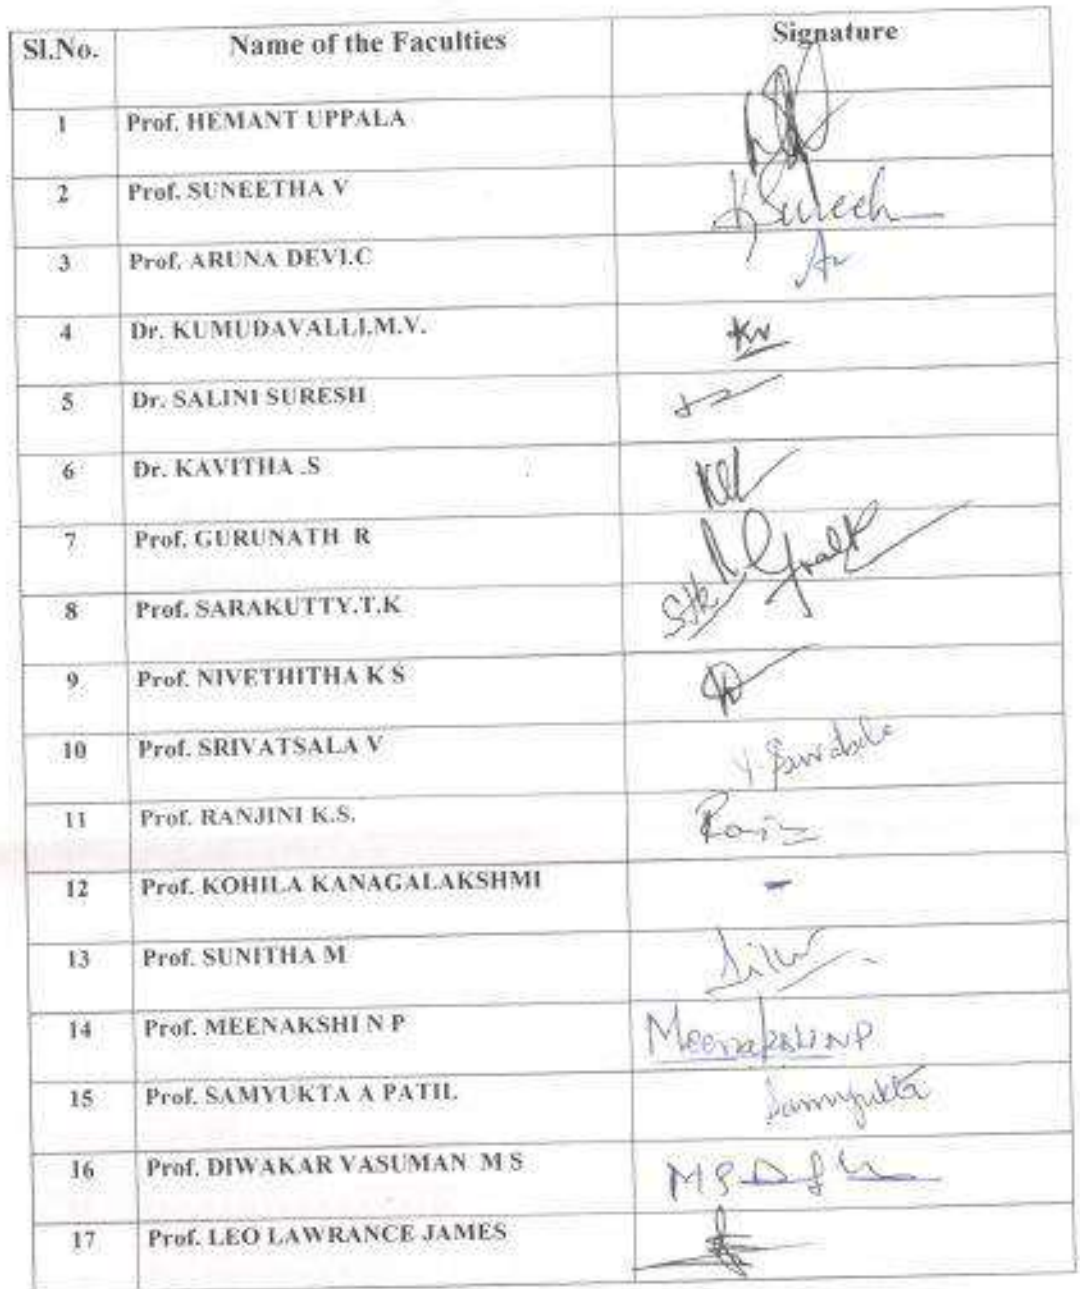 Sl.No. Name of the Faculties Signature
1 Prof. HEMANT UPPALA
2 Prof. SUNEETHA V
3 Prof. ARUNA DEVI.C
4 Dr. KUMUDAVALLI.M.V. Kv
5 Dr. SALINI SURESH
6 Dr. KAVITHA .S
7 Prof. GURUNATH R
8 Prof. SARAKUTTY.T.K
9 Prof. NIVETHITHA K S
10 Prof. SRIVATSALA V
11 Prof. RANJINI K.S.
12 Prof. KOHILA KANAGALAKSHMI -
13 Prof. SUNITHA M
14 Prof. MEENAKSHI N P Meenakshi NP
15 Prof. SAMYUKTA A PATIL Samyukta
16 Prof. DIWAKAR VASUMAN M S
17 Prof. LEO LAWRANCE JAMES